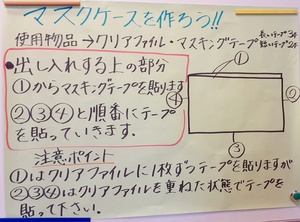 マスクケースを作ろう!!
使用物品→クリアファイル・マスキングテープ
長いテープ3本
短いテープ2本
●出し入れする上の部分
①からマスキングテープを貼ります
②③④と順番にテープ
を貼っていきます。
①
④
②
③
注意ポイント
①はクリアファイルに1枚ずつテープを貼りますが
②③④はクリアファイルを重ねた状態でテープを
貼って下さい。